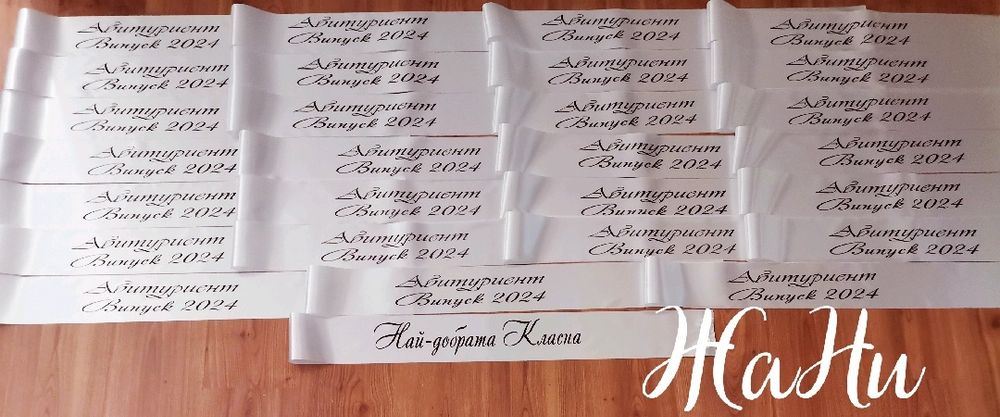 Абитуриент
Випуск 2024
Абитуриент
Випуск 2024
Абитуриент
Випуск 2024
Абитуриент
Випуск 2024
Абитуриент
Випуск 2024
Абитуриент
Випуск 2024
Абитуриент
Випуск 2024
Абитуриент
Випуск 2024
Абитуриент
Випуск 2024
Абитуриент
Випуск 2024
Абитуриент
Випуск 2024
Абитуриент
Випуск 2024
Абитуриент
Випуск 2024
Абитуриент
Випуск 2024
Абитуриент
Випуск 2024
Абитуриент
Випуск 2024
Абитуриент
Випуск 2024
Абитуриент
Випуск 2024
Абитуриент
Випуск 2024
Абитуриент
Випуск 2024
Абитуриент
Випуск 2024
Абитуриент
Випуск 2024
Абитуриент
Випуск 2024
Абитуриент
Випуск 2024
Абитуриент
Випуск 2024
Абитуриент
Випуск 2024
Абитуриент
Випуск 2024
Най-добрата Класна
ЖаНи